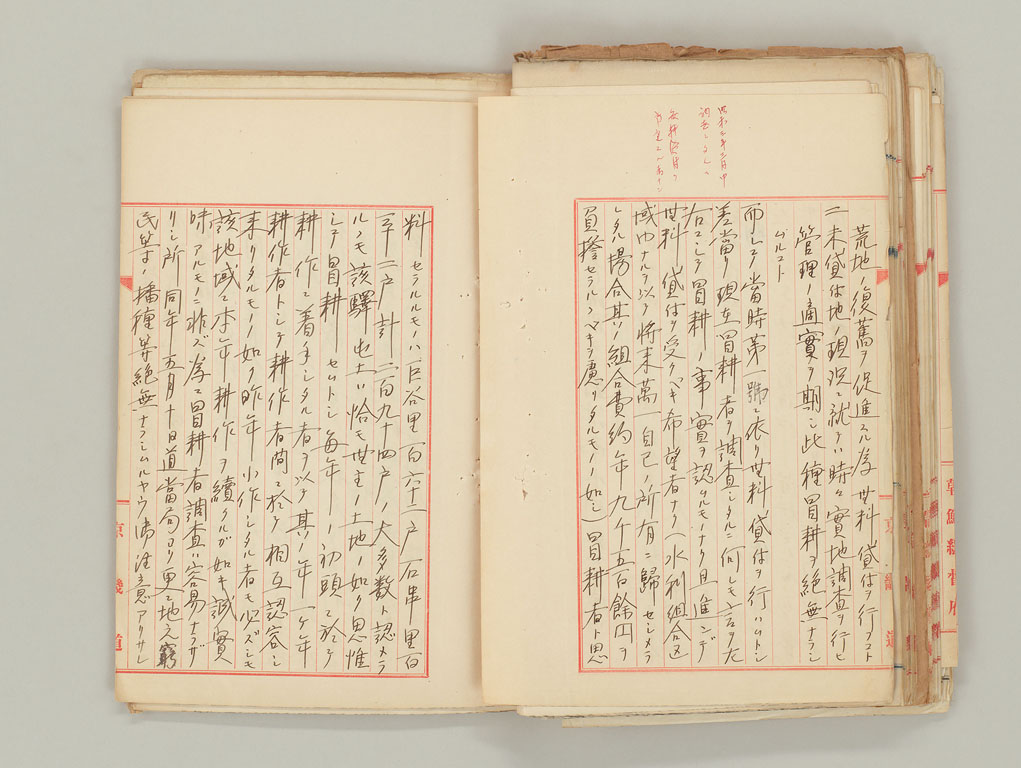 荒地ノ復舊ヲ促進スル為無料貸付ヲ行フコト
二未貸付地ノ現況ニ就テハ時々實地調査ヲ行ヒ
管理ノ適實ヲ期シ此種冒耕ヲ絶無ナラシ
ムルコト
而シテ當時第一號ニ依リ無料貸付ヲ行ハムトシ
差當リ現在冒耕者ヲ調査シタルニ何レモ言ヲ左
右ニシテ冒耕ノ事實ヲ認ムルモノナク且進ンデ
無料貸付ヲ受クベキ希望者ナク(水利組合区
域内ナルヲ以テ將来萬一自己ノ所有ニ歸セシメラ
レタル場合其ノ組合費約年九千五百餘円ヲ
負擔セラルベキヲ慮リタルモノノ如シ)冒耕者ト思
料セラルルモノハ巨谷里百六十二戸石串里百
二戸計二百九十四戸ノ大多数ト認メラ
ルルモ該驛屯土ハ恰モ無主ノ土地ノ如ク思惟
シテ冒耕セムトシ毎年ノ初頭ニ於テ
耕作ニ着手シタル者ヲ以テ其ノ年一ケ年
耕作者トシテ耕作者間ニ於テ相互認容シ
来リタルモノノ如ク昨年小作シタル者モ必ズシモ
該地域ニ本年耕作ヲ續クルガ如キ誠實
味アルモノニ非ズ為ニ冒耕者調査ハ容易ナラザ
リシ所同年五月十日道當局ヨリ更ニ地元窮
民等ノ播種等絶無ナラシムルヤウ御注意アリタシ
京畿道
朝鮮總督府